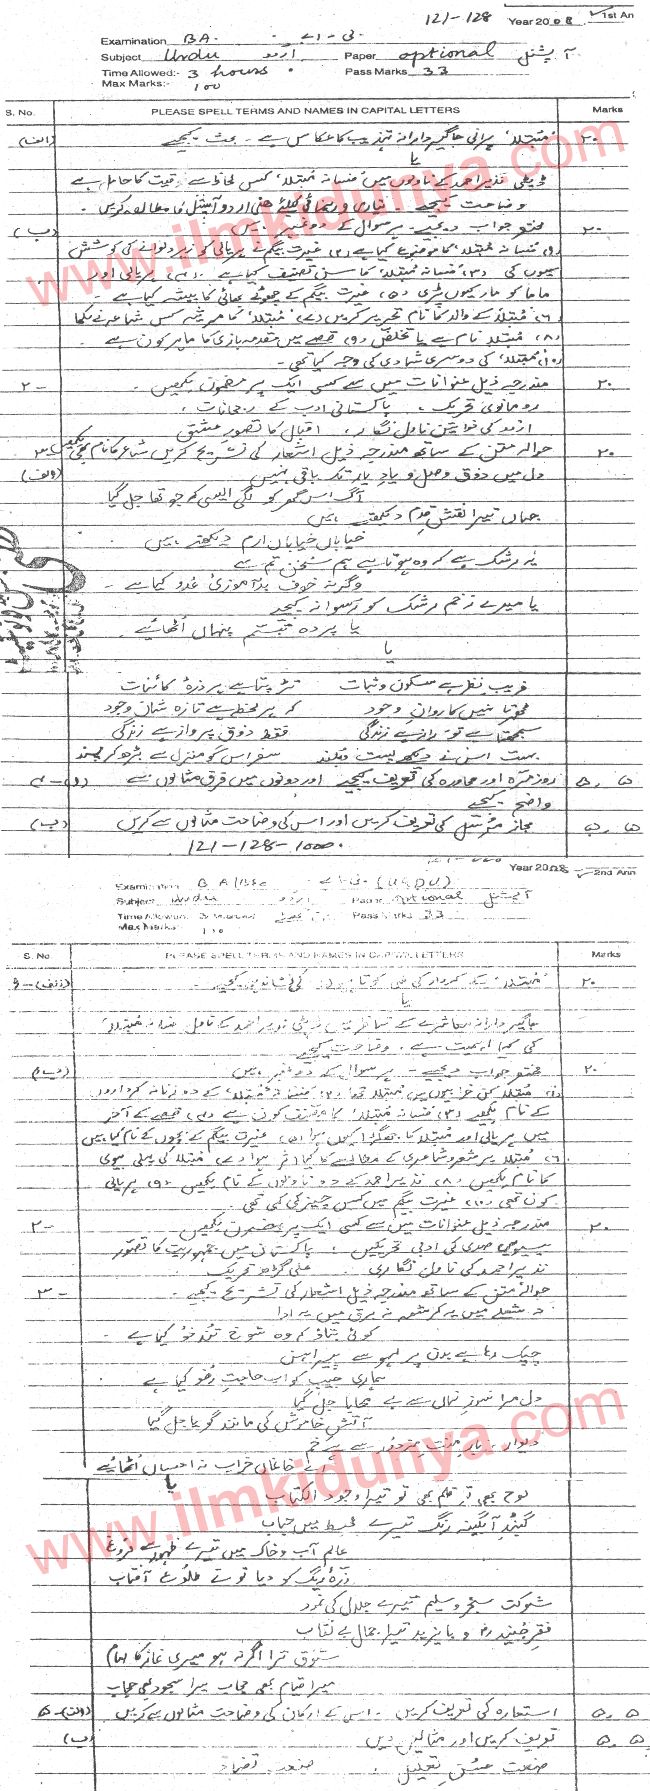 121-128 Year 2008 1st An
Examination BA. بی-اے
Subject Urdu اردو Paper optional آپشنل
Time Allowed:- 3 hours. Pass Marks 33
Max Marks:- 100
S. No. PLEASE SPELL TERMS AND NAMES IN CAPITAL LETTERS Marks
(الف) مُبتلا، پرانی جاگیردارانہ تہذیب کا عکاس ہے۔ بحث کیجیے ۲۰
یا
ڈپٹی نذیر احمد کے ناولوں میں فسانہ مُبتلا، کس لحاظ سے کا حامل ہے
وضاحت کیجیے۔
(ب) مختصر جواب دیجیے۔ ہر سوال کے دو نمبر ہیں ۲۰
(۱) فسانہ مبتلا، کا موضوع کیا ہے (۲) غیرت بیگم نے ہریالی کو زہر دلوانے کی کوشش
کیوں کی (۳) فسانہ مُبتلا، کا سن تصنیف کیا ہے (۴) ہریالی اور
ماما کو مار کیوں پڑی (۵) غیرت بیگم کے چھوٹے بھائی کا پیشہ کیا ہے۔
(۶) مُبتلا کے والد کا نام تحریر کریں (۷) مُبتلا، کا مرثیہ کس شاعر نے لکھا
(۸) مُبتلا نام ہے یا تخلص (۹) قصے میں مقدمہ بازی کا ماہر کون ہے۔
(۱۰) مُبتلا، کی دوسری شادی کی وجہ کیا تھی۔
۲- مندرجہ ذیل عنوانات میں سے کسی ایک پر مضمون لکھیں۔ ۲۰
رومانوی تحریک، پاکستانی ادب کے رجحانات،
اردو کی خواتین ناول نگار، اقبال کا تصورِ عشق
۳- حوالہ متن کے ساتھ مندرجہ ذیل اشعار کی تشریح کریں شاعر کا نام بھی لکھیں ۲۰
(الف) دل میں ذوق وصل و یادِ یار تک باقی نہیں
آگ اس گھر کو لگی ایسی کہ جو تھا جل گیا
جہاں تیرا نقشِ قدم دیکھتے ہیں
خیاباں خیاباں ارم دیکھتے ہیں
یہ رشک ہے کہ وہ ہوتا ہے ہم سُخن تم سے
وگرنہ خوف بدآموزئ عدو کیا ہے۔
یا میرے زخم رشک کو رسوا نہ کیجیے
یا پردہ تبسّم پنہاں اُٹھائیے
یا
فریب نظر ہے سکون و ثبات تڑپتا ہے ہر ذرۂ کائنات
ٹھہرتا نہیں کاروانِ وجود کہ ہر لحظہ ہے تازہ شانِ وجود
سمجھتا ہے تو راز ہے زندگی فقط ذوقِ پرواز ہے زندگی
بہت اس نے دیکھے پست و بلند سفر اس کو منزل سے بڑھ کر پسند
۴-(الف) روزمرّہ اور محاورہ کی تعریف کیجیے اور دونوں میں فرق مثالوں سے ۵،۵
واضح کیجیے
(ب) مجاز مُرسَل کی تعریف کریں اور اس کی وضاحت مثالوں سے کریں ۵،۵
121-128-1000.
Year 2008 2nd Ann
Examination BA بی-اے (URDU)
Subject Urdu اردو Paper optional آپشنل
Time Allowed Pass Marks 33
Max Marks: 100
S. No. PLEASE SPELL TERMS AND NAMES IN CAPITAL LETTERS Marks
(الف) مُبتلا، کے کردار کی کی نشاندہی کیجیے۔ ۲۰
یا
جاگیردارانہ معاشرے کے تناظر میں ڈپٹی نذیر احمد کے ناول فسانہ مُبتلا،
کی کیا اہمیت ہے۔ وضاحت کیجیے
(ب) مختصر جواب دیجیے۔ ہر سوال کے دو نمبر ہیں ۲۰
(۱) مُبتلا کن میں مُبتلا تھا (۲) مُبتلا، کے دو زنانہ کرداروں
کے نام لکھیے (۳) فسانہ مُبتلا، کا مصنف کون ہے (۴) قصے کے آخر
میں ہریالی اور مُبتلا کا جھگڑا کیوں ہوا (۵) غیرت بیگم کے بچوں کے نام کیا ہیں
(۶) مُبتلا پر شعر و شاعری کے مطالعے کا کیا اثر ہوا (۷) مُبتلا کی پہلی بیوی
کا نام لکھیں (۸) نذیر احمد کے دو ناولوں کے نام لکھیں (۹) ہریالی
کون تھی (۱۰) غیرت بیگم میں کس چیز کی کمی تھی۔
۲- مندرجہ ذیل عنوانات میں سے کسی ایک پر مضمون لکھیں ۲۰
بیسویں صدی کی ادبی تحریکیں، پاکستان میں جمہوریت کا تصوّر
نذیر احمد کی ناول نگاری، علی گڑھ تحریک
۳- حوالہ متن کے ساتھ مندرجہ ذیل اشعار کی تشریح کیجیے۔
نہ شعلے میں یہ کرشمہ نہ برق میں یہ ادا
کوئی بتاؤ کہ وہ شوخِ تُند خُو کیا ہے۔
چپک رہا ہے بدن پر لہو سے پیراہن
ہماری جیب کو اب حاجتِ رفو کیا ہے
دل مرا سوزِ نہاں سے بے محابا جل گیا
آتشِ خاموش کی مانند گویا جل گیا
دیوار بارِ منتِ مزدور سے ہے خم
اے خانماں خراب نہ احساں اُٹھائیے
یا
لوح بھی تو قلم بھی تو تیرا وجود الکتاب
گنبدِ آبگینہ رنگ تیرے محیط میں حباب
عالم آب و خاک میں تیرے ظہور سے فروغ
ذرّۂ ریگ کو دیا تو نے طلوعِ آفتاب
شوکت سنجر و سلیم تیرے جلال کی نمود
فقرِ جُنید و بایزید تیرا جمال بے نقاب
شوق ترا اگر نہ ہو میری نماز کا امام
میرا قیام بھی حجاب میرا سجود بھی حجاب
(الف) استعارہ کی تعریف کریں۔ اس کے ارکان کی وضاحت مثالوں سے کریں ۵،۵
(ب) تعریف کریں اور مثالیں دیں ۵،۵
صنعت حسنِ تعلیل، صنعت تضاد
www.ilmkidunya.com
www.ilmkidunya.com